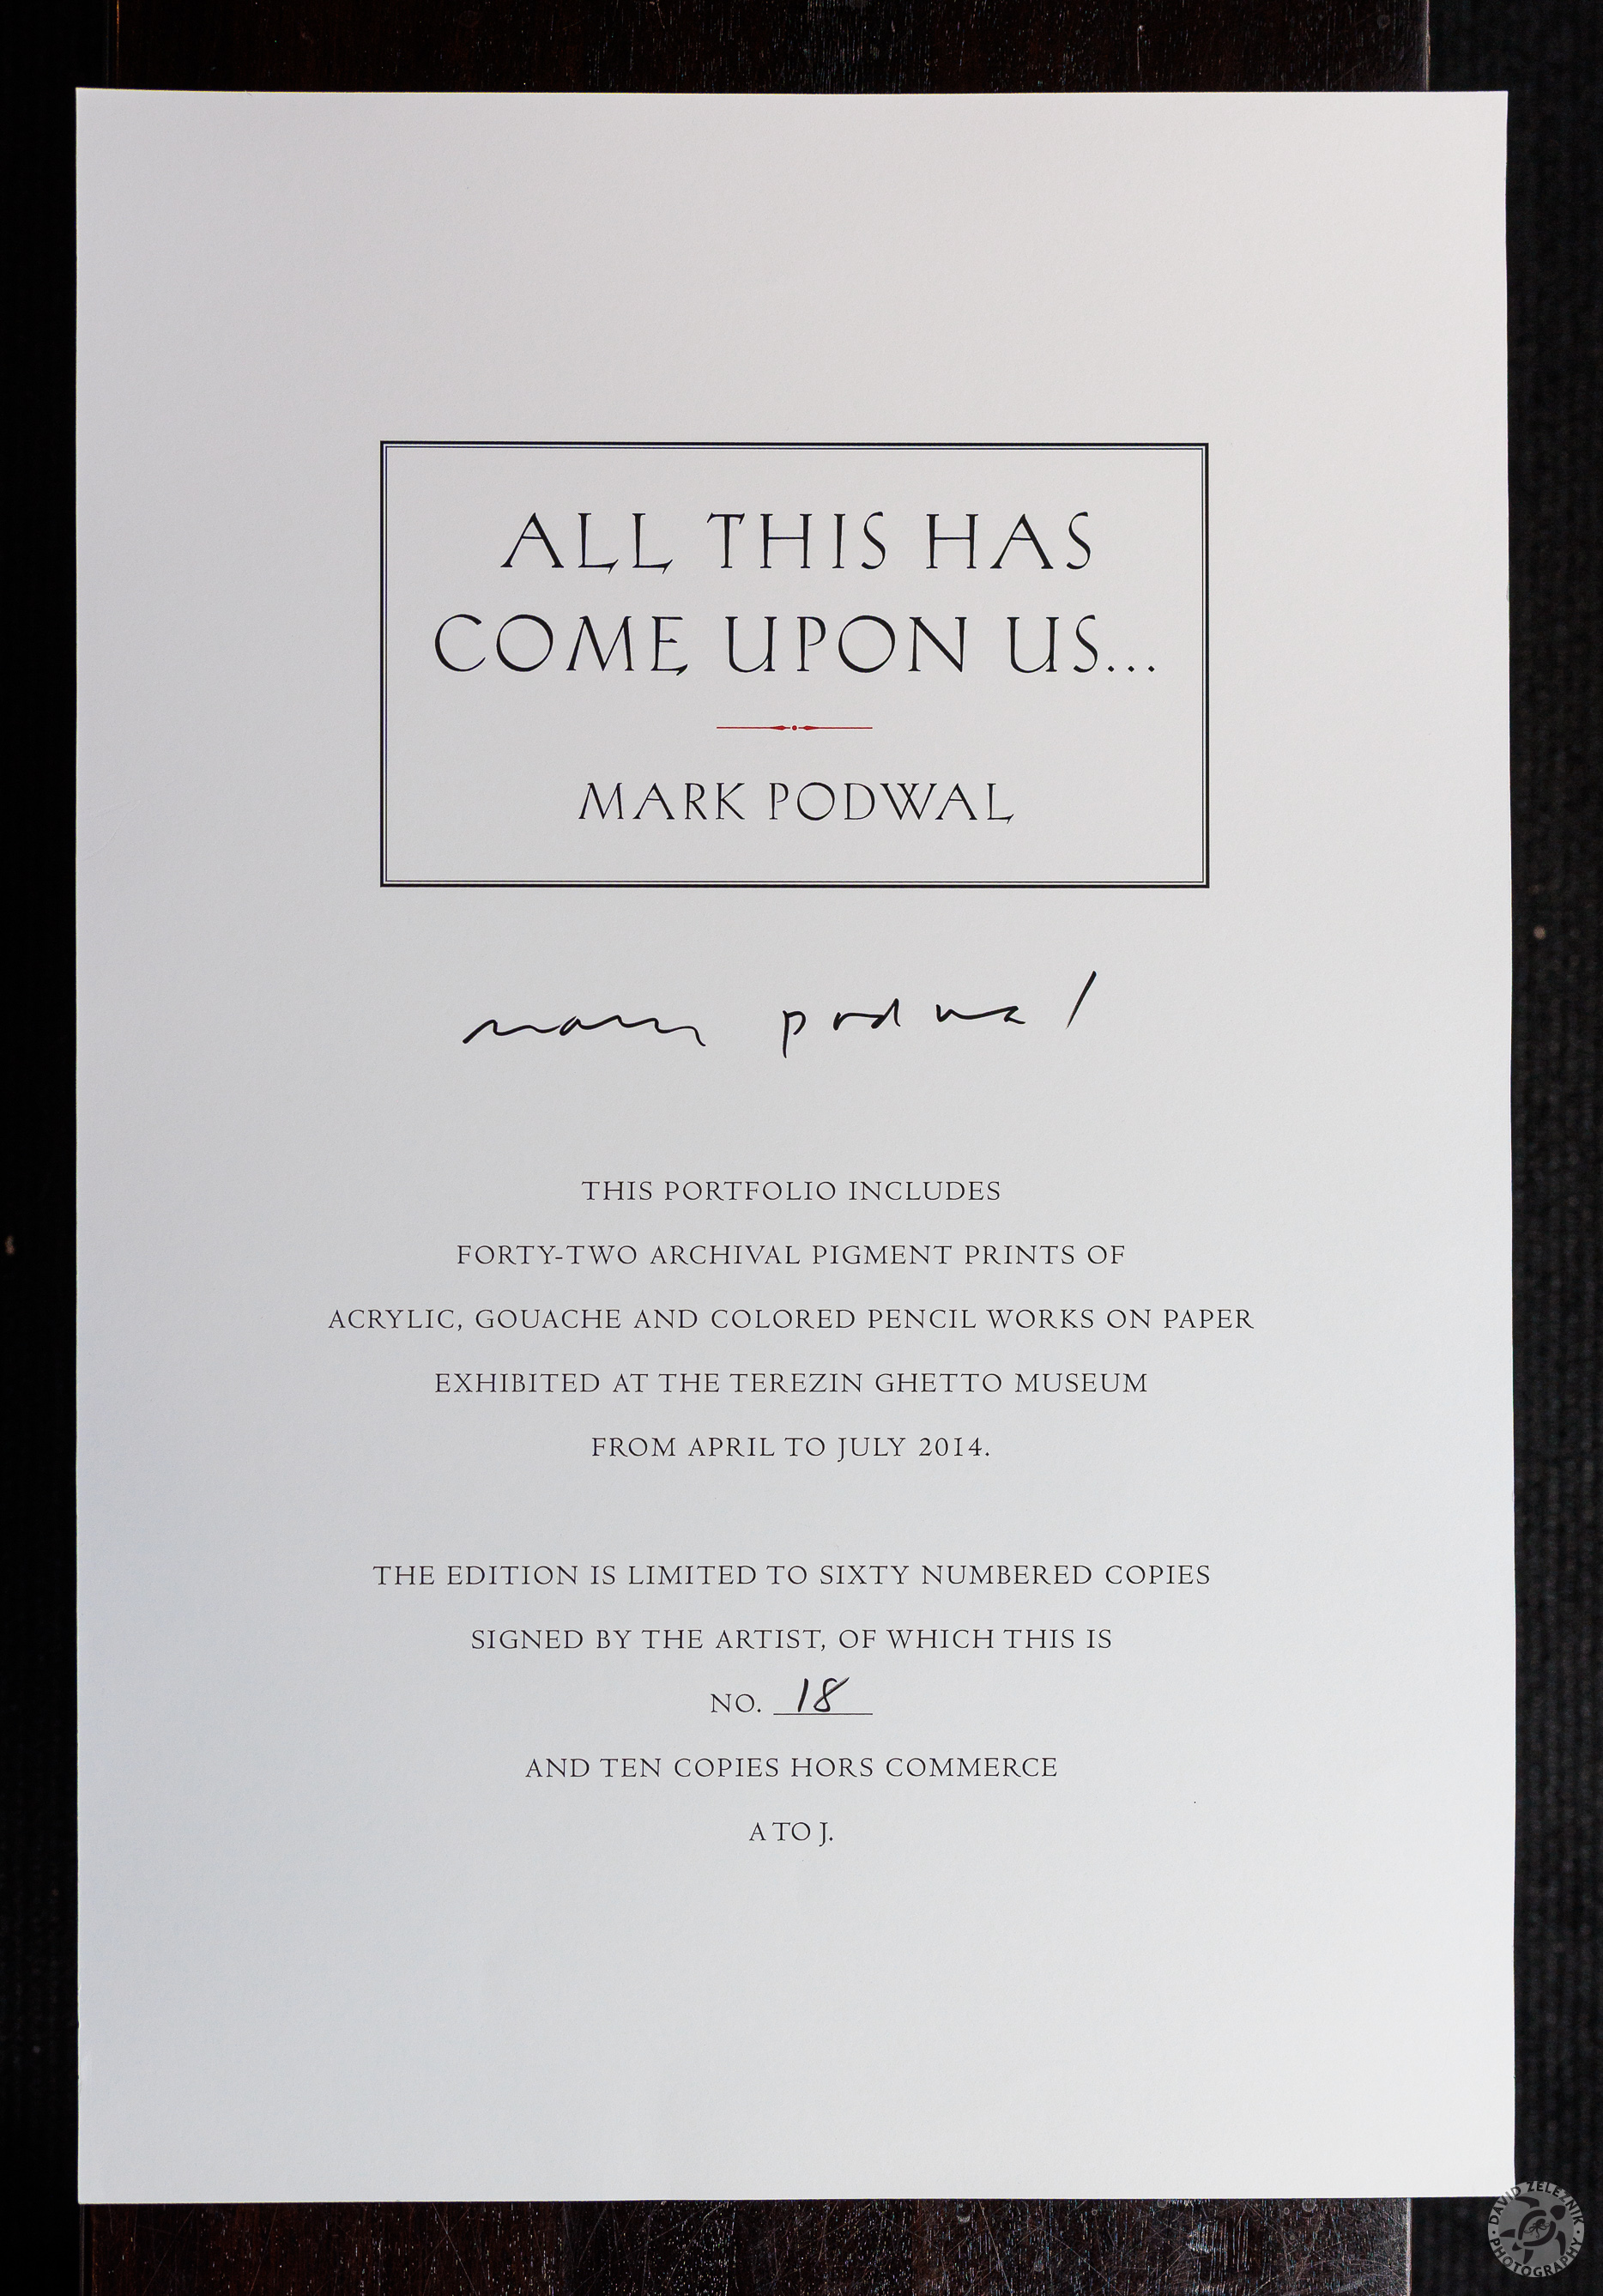 ALL THIS HAS
COME UPON US...
MARK PODWAL
mark podwal
THIS PORTFOLIO INCLUDES
FORTY-TWO ARCHIVAL PIGMENT PRINTS OF
ACRYLIC, GOUACHE AND COLORED PENCIL WORKS ON PAPER
EXHIBITED AT THE TEREZIN GHETTO MUSEUM
FROM APRIL TO JULY 2014.
THE EDITION IS LIMITED TO SIXTY NUMBERED COPIES
SIGNED BY THE ARTIST, OF WHICH THIS IS
NO. 18
AND TEN COPIES HORS COMMERCE
A TO J.
DAVID ZELEZNIK
PHOTOGRAPHY